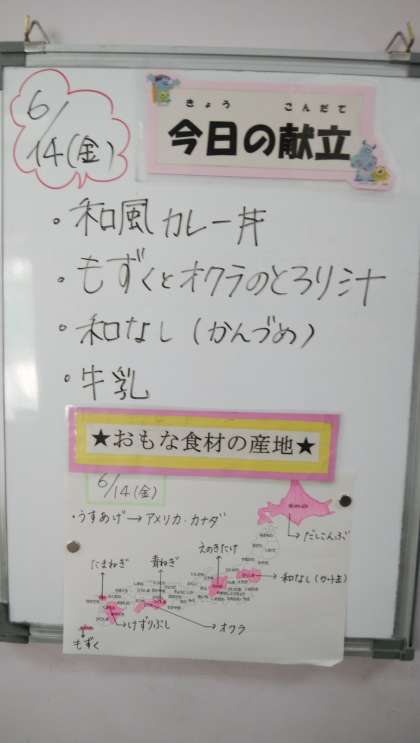 6/14(金)
きょう こんだて
今日の献立
・和風カレー丼
・もずくとオクラのとろり汁
・和なし(かんづめ)
・牛乳
★おもな食材の産地★
6/14(金)
・うすあげ→アメリカ・カナダ
だしこんぶ
えのきたけ
たまねぎ
青ねぎ
和なし(かんづめ)
けずりぶし
オクラ
もずく